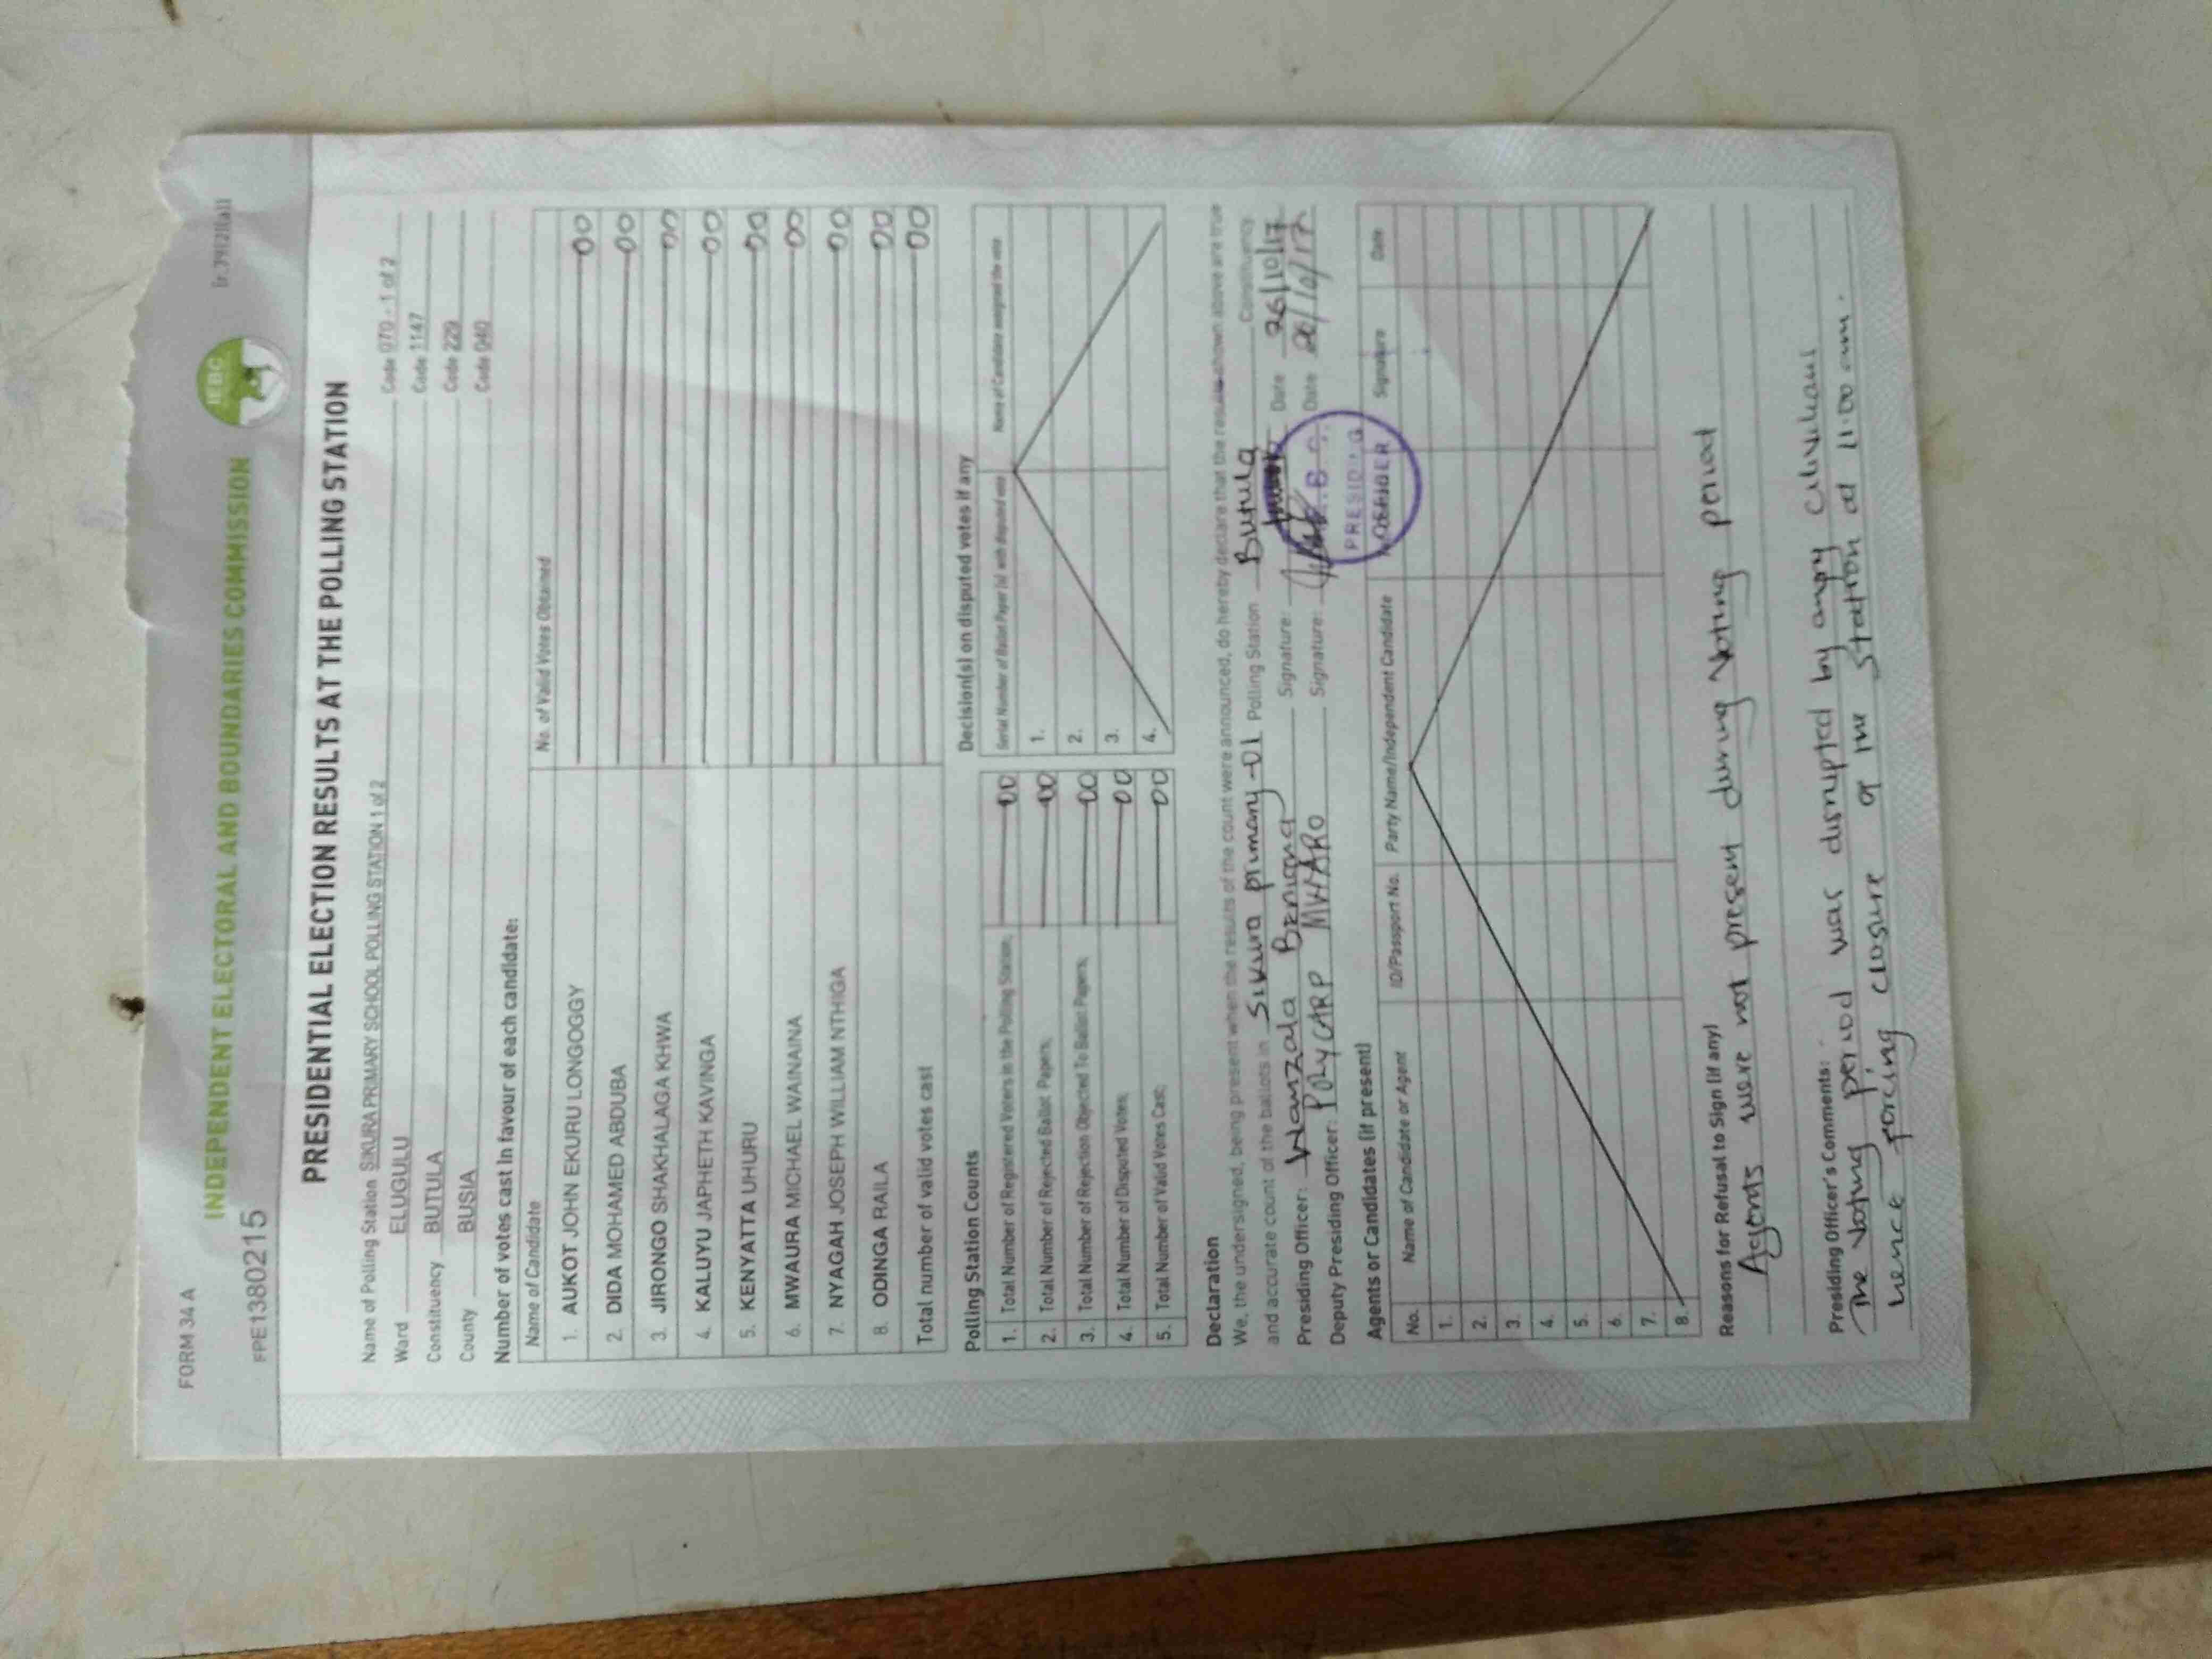 FORM 34 A
INDEPENDENT ELECTORAL AND BOUNDARIES COMMISSION
IEBC
FPE1380215
PRESIDENTIAL ELECTION RESULTS AT THE POLLING STATION
Name of Polling Station SIKURA PRIMARY SCHOOL POLLING STATION 1 of 2 Code 070 - 1 of 2
Ward ELUGULU Code 1147
Constituency BUTULA Code 229
County BUSIA Code 040
Number of votes cast in favour of each candidate:
Name of Candidate No. of Valid Votes Obtained
1. AUKOT JOHN EKURU LONGOGGY 00
2. DIDA MOHAMED ABDUBA 00
3. JIRONGO SHAKHALAGA KHWA 00
4. KALUYU JAPHETH KAVINGA 00
5. KENYATTA UHURU 00
6. MWAURA MICHAEL WAINAINA 00
7. NYAGAH JOSEPH WILLIAM NTHIGA 00
8. ODINGA RAILA 00
Total number of valid votes cast 00
Polling Station Counts
1. Total Number of Registered Voters in the Polling Station; 00
2. Total Number of Rejected Ballot Papers; 00
3. Total Number of Rejection Objected To Ballot Papers; 00
4. Total Number of Disputed Votes; 00
5. Total Number of Valid Votes Cast; 00
Decision(s) on disputed votes if any
Serial Number of Ballot Paper (s) with disputed vote Name of Candidate assigned the vote
1.
2.
3.
4.
Declaration
We, the undersigned, being present when the results of the count were announced, do hereby declare that the results shown above are true
and accurate count of the ballots in Sikura primary -01 Polling Station Butula Constituency
Presiding Officer: Wanzala Signature: Date 26/10/17
Deputy Presiding Officer: POLYCARP MWARO Signature: Date 26/10/17
PRESIDING
OFFICER
Agents or Candidates (if present)
No. Name of Candidate or Agent ID/Passport No. Party Name/Independent Candidate Signature Date
1.
2.
3.
4.
5.
6.
7.
8.
Reasons for Refusal to Sign (if any)
Agents were not present during Voting period
Presiding Officer's Comments:
The Voting period was disrupted by angry
hence forcing closure of the station at 11:00 am.